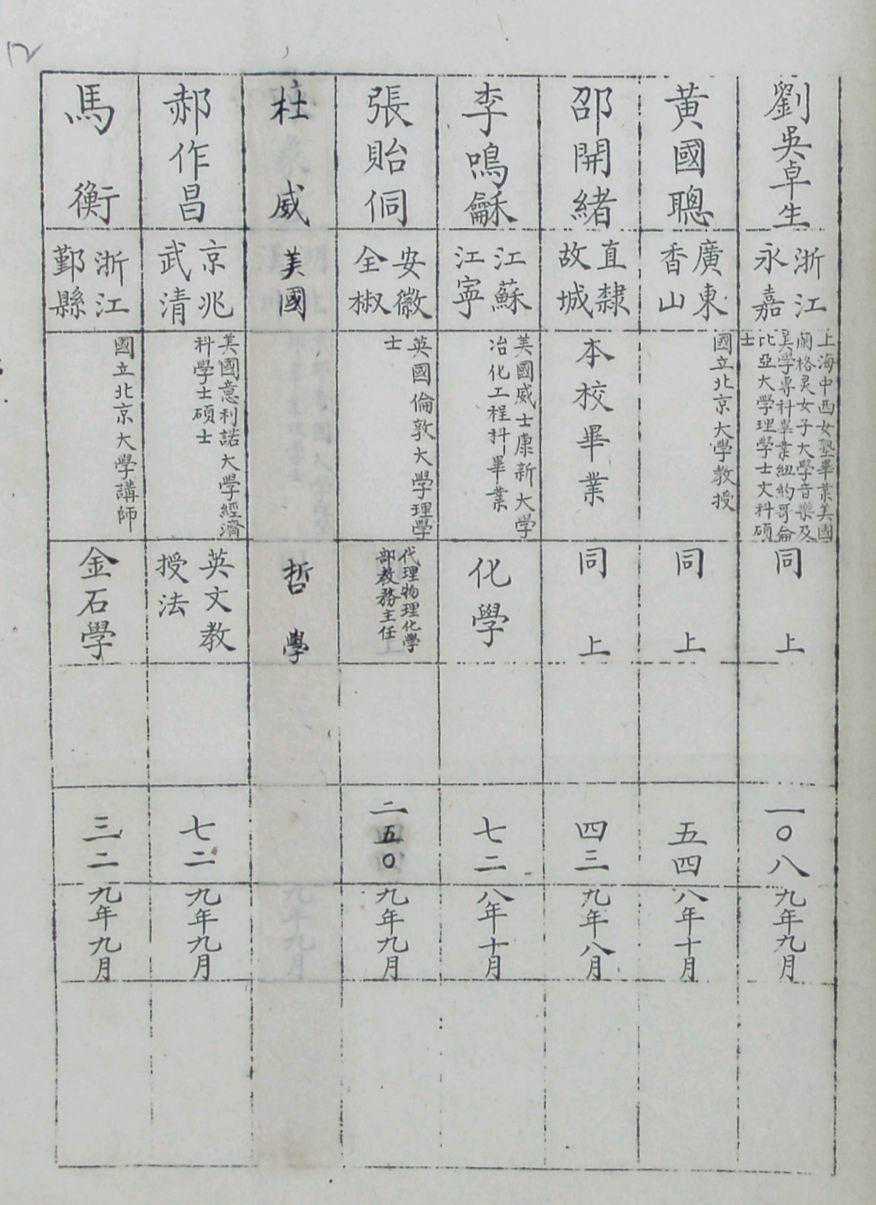 12
劉吳卓生
浙江
永嘉
上海中西女塾畢業美國
蘭格灵女子大學音樂及
美學專科畢業紐約哥侖
比亞大學理學士文科碩
士
同上
一〇八
九年九月
黃國聰
廣東
香山
國立北京大學教授
同上
五四
八年十月
邵開緒
直隸
故城
本校畢業
同上
四三
九年八月
李鳴龢
江蘇
江寧
美國威士康新大學
冶化工程科畢業
化學
七二
八年十月
張貽侗
安徽
全椒
英國倫敦大學理學
士
代理物理化學
部教務主任
二五〇
九年九月
杜威
美國
哲學
九年九月
郝作昌
京兆
武清
美國意利諾大學經濟
科學士碩士
英文教
授法
七二
九年九月
馬衡
浙江
鄞縣
國立北京大學講師
金石學
三二
九年九月